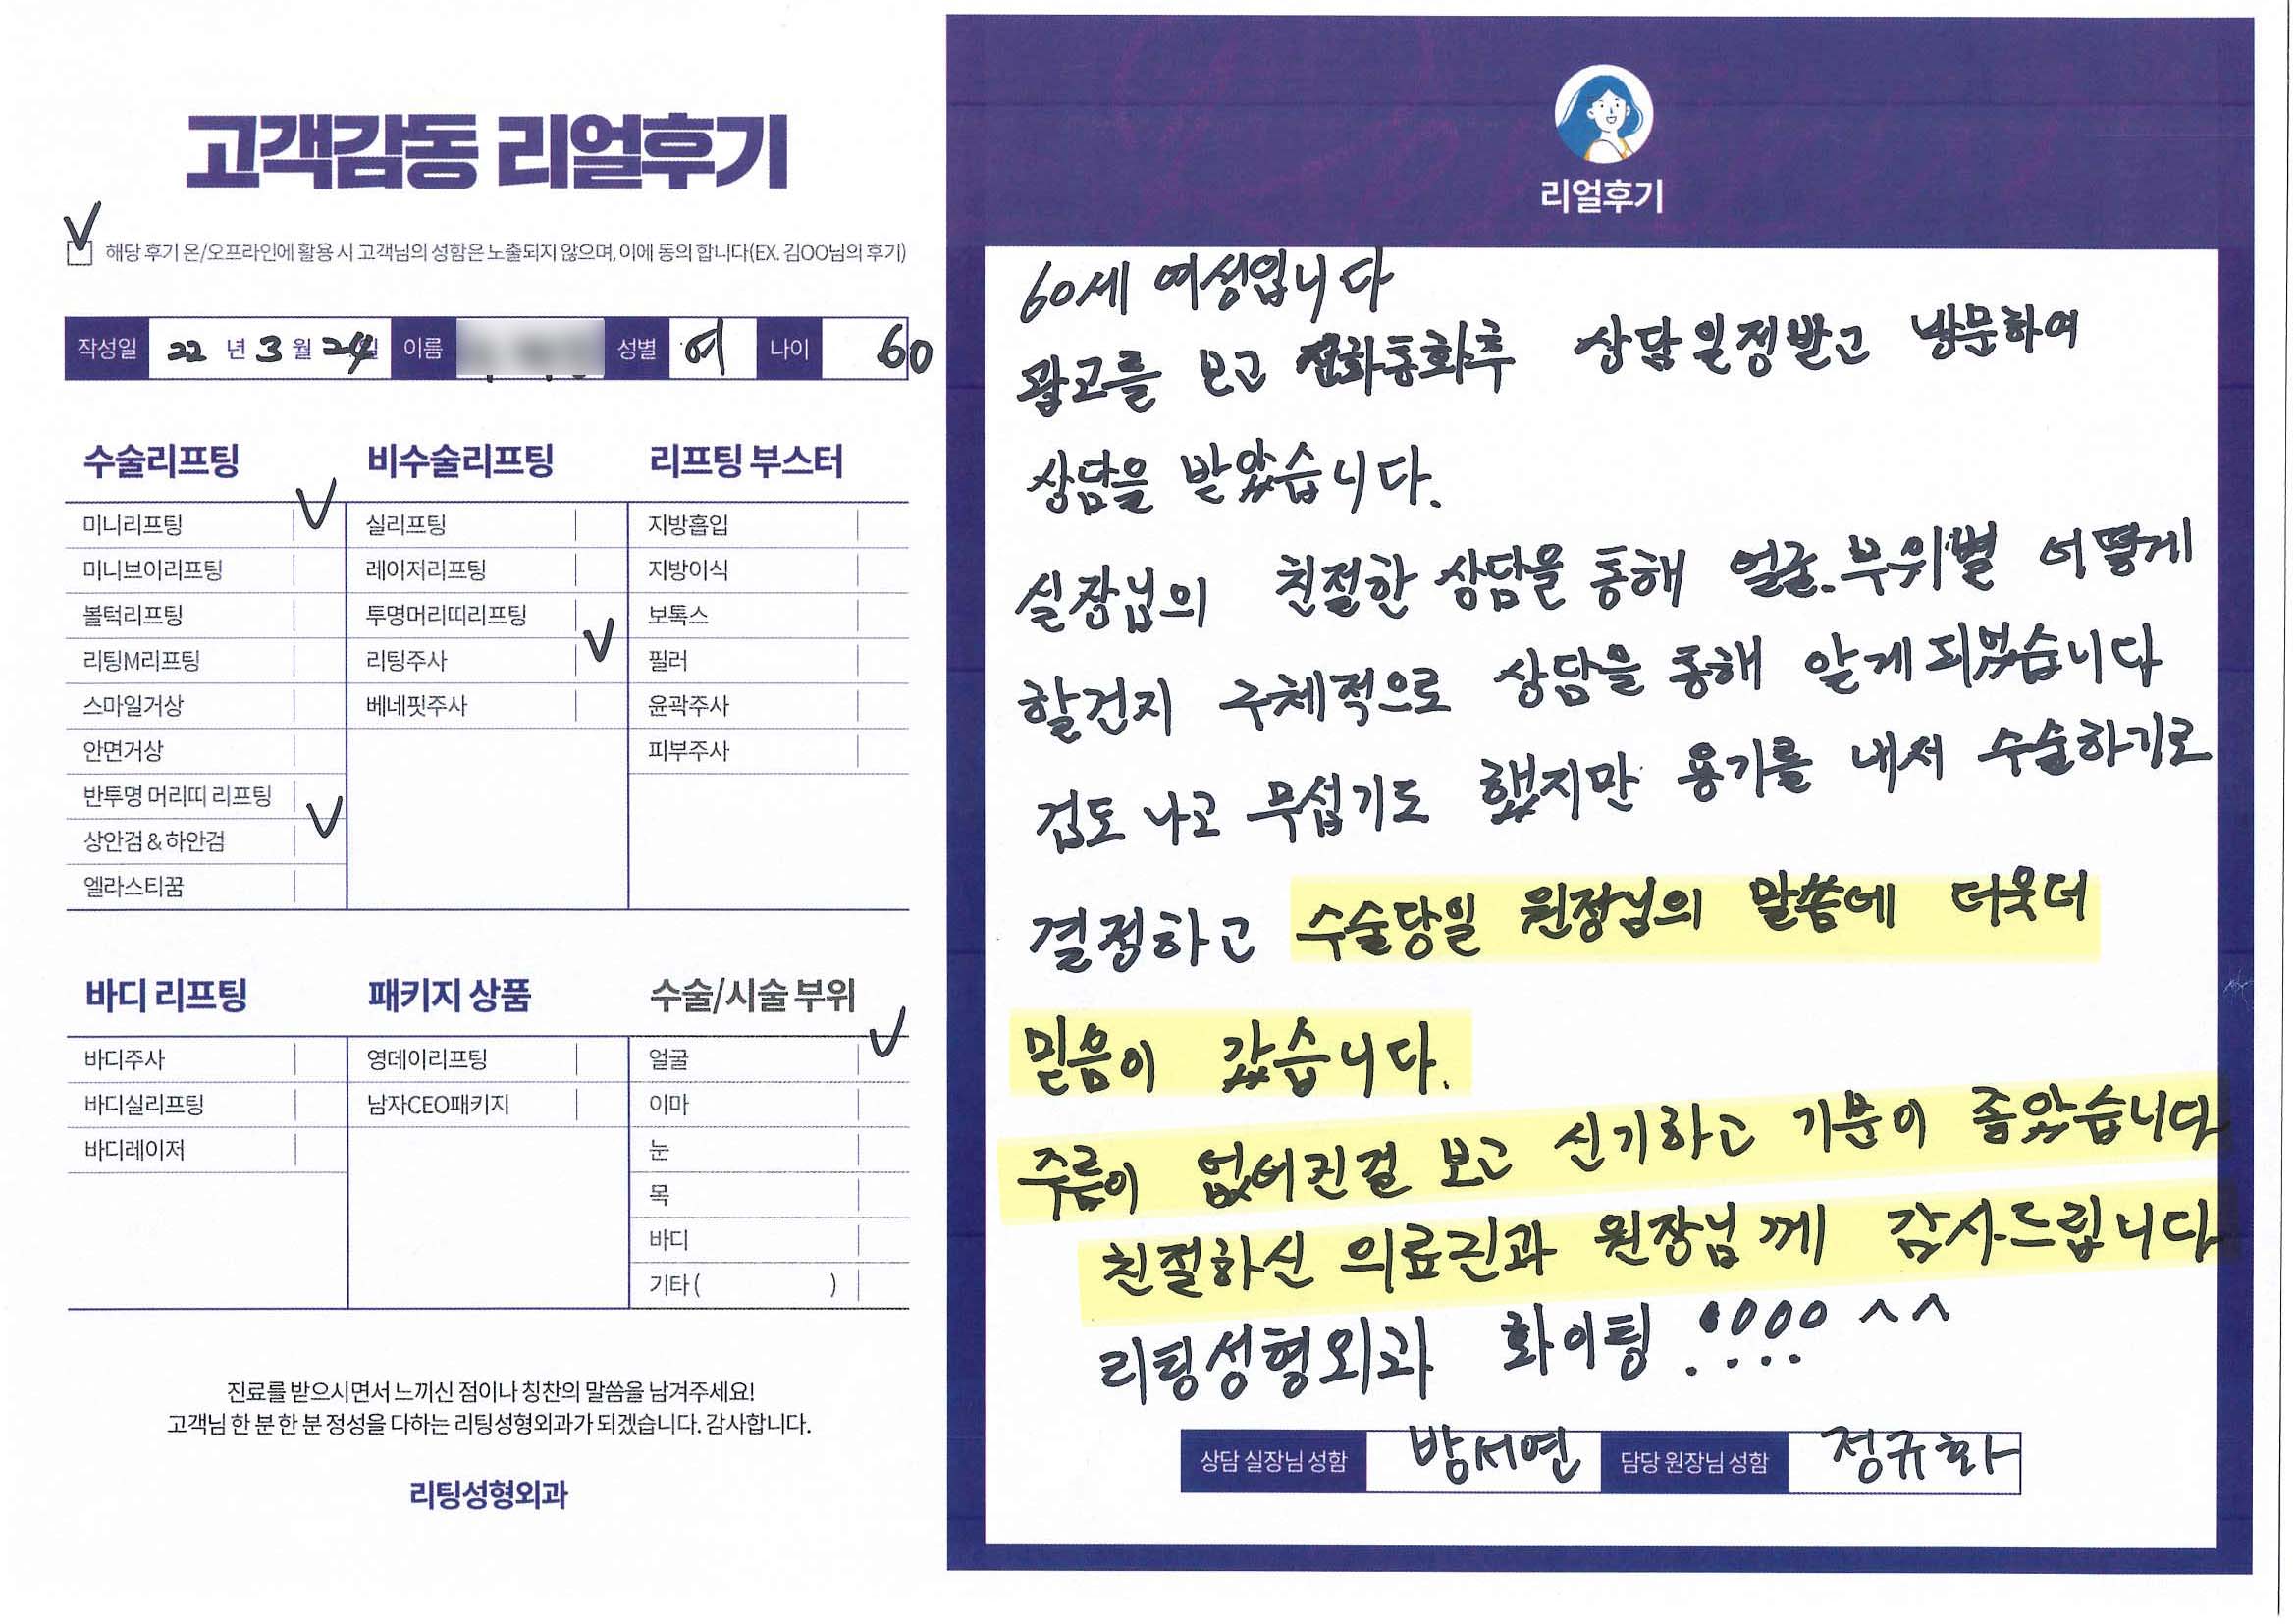 고객감동 리얼후기
해당 후기 온/오프라인에 활용 시 고객님의 성함은 노출되지 않으며, 이에 동의 합니다(EX. 김OO님의 후기)
작성일 22 년 3 월 24 일 이름 성별 여 나이 60
수술리프팅
미니리프팅
미니브이리프팅
볼턱리프팅
리팅M리프팅
스마일거상
안면거상
반투명 머리띠 리프팅
상안검 & 하안검
엘라스티꿈
비수술리프팅
실리프팅
레이저리프팅
투명머리띠리프팅
리팅주사
베네핏주사
리프팅 부스터
지방흡입
지방이식
보톡스
필러
윤곽주사
피부주사
바디 리프팅
바디주사
바디실리프팅
바디레이저
패키지 상품
영데이리프팅
남자CEO패키지
수술/시술 부위
얼굴
이마
눈
목
바디
기타 ( )
진료를 받으시면서 느끼신 점이나 칭찬의 말씀을 남겨주세요!
고객님 한 분 한 분 정성을 다하는 리팅성형외과가 되겠습니다. 감사합니다.
리팅성형외과
리얼후기
60세 여성입니다
광고를 보고 전화통화후 상담일정받고 방문하여
상담을 받았습니다.
실장님의 친절한 상담을 통해 얼굴.부위별 어떻게
할건지 구체적으로 상담을 통해 알게되었습니다
겁도 나고 무섭기도 했지만 용기를 내서 수술하기로
결정하고 수술당일 원장님의 말씀에 더욱더
믿음이 갔습니다.
주름이 없어진걸 보고 신기하고 기분이 좋았습니다
친절하신 의료진과 원장님께 감사드립니다
리팅성형외과 화이팅 !!!!! ^^
상담 실장님 성함 방서연 담당 원장님 성함 정규화